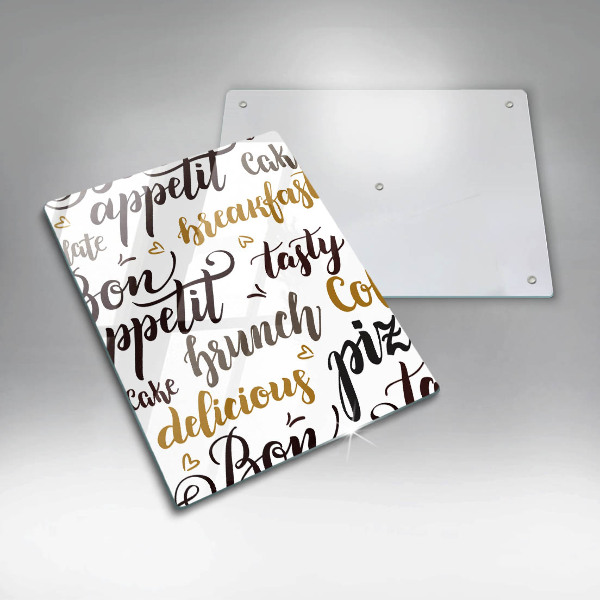 appetit cak
late breakfast
Bon tasty
ppetit Co
brunch piz
cake
delicious ta
Bon